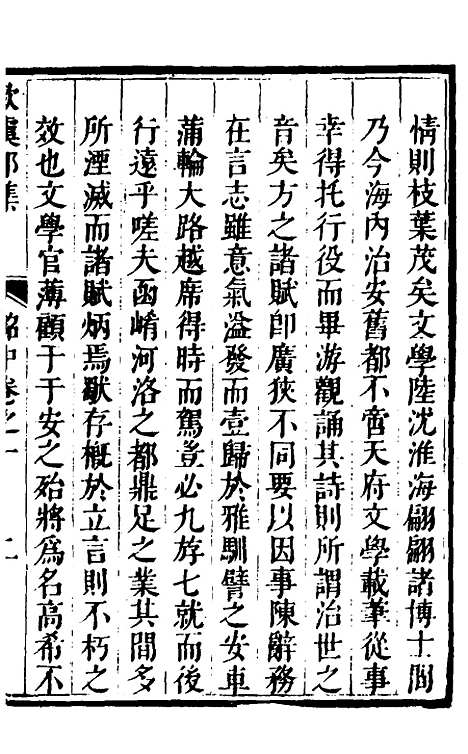 情則枝葉茂矣文學陸沈淮海翩翩諸博士間
乃今海內治安舊都不啻天府文學載筆從事
幸得托行役而畢游觀誦其詩則所謂治世之
音矣方之諸賦卽廣狹不同要以因事陳辭務
在言志雖意氣溢發而壹歸於雅馴譬之安車
蒲輪大路越席得時而駕豈必九斿七就而後
行遠乎嗟夫函崤河洛之都鼎足之業其間多
所湮滅而諸賦炳焉猷存概於立言則不朽之
效也文學官薄顧于于安之殆將爲名高希不
歐虞部集
銘中卷之一
二